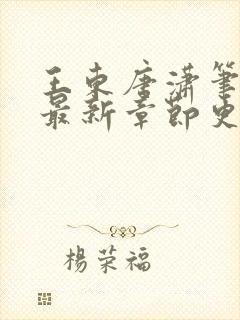 王东唐潇笔
最新章节史
杨荣福